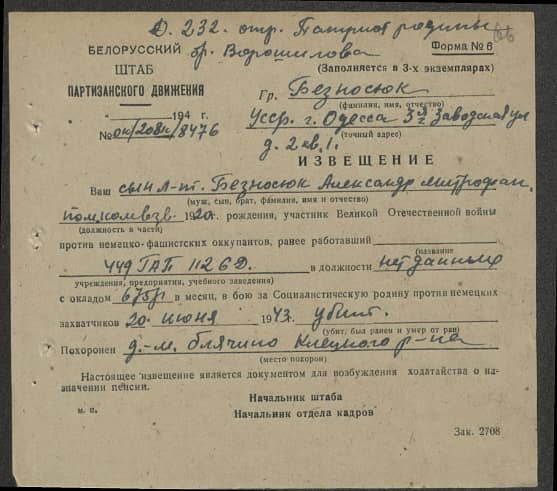 Д. 232. отр. Патриот родины
66
БЕЛОРУССКИЙ бр. Ворошилова Форма № 6
ШТАБ (Заполняется в 3-х экземплярах)
ПАРТИЗАНСКОГО ДВИЖЕНИЯ Гр. Безносюк
(фамилия, имя, отчество)
194 г. Усср. г. Одесса 3я Заводская ул
№ /8476 (точный адрес)
д. 2 кв. 1.
ИЗВЕЩЕНИЕ
Ваш сын л-т. Безносюк Александр Митрофан.
(муж, сын, брат, фамилия, имя и отчество)
пом.ком.взв. 1920 г. рождения, участник Великой Отечественной войны
(должность в части)
против немецко-фашистских оккупантов, ранее работавший
(название
449 ГАП 112 б Д. в должности нет данных
учреждения, предприятия, учебного заведения)
с окладом 675 р в месяц, в бою за Социалистическую родину против немецких
захватчиков 20 июня 1943 г. убит.
(убит, был ранен и умер от ран)
Похоронен д.-м. Блячино Клецкого р-на
(место похорон)
Настоящее извещение является документом для возбуждения ходатайства о на-
значении пенсии.
Начальник штаба
м. п. Начальник отдела кадров
Зак. 2708